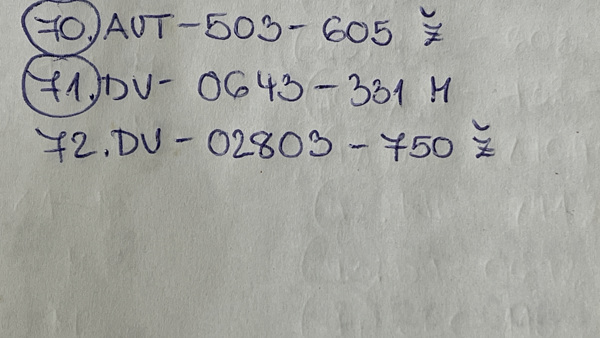 70. AUT-503-605 Ž
71. DV- 0643-331 M
72. DV-02803-750 Ž